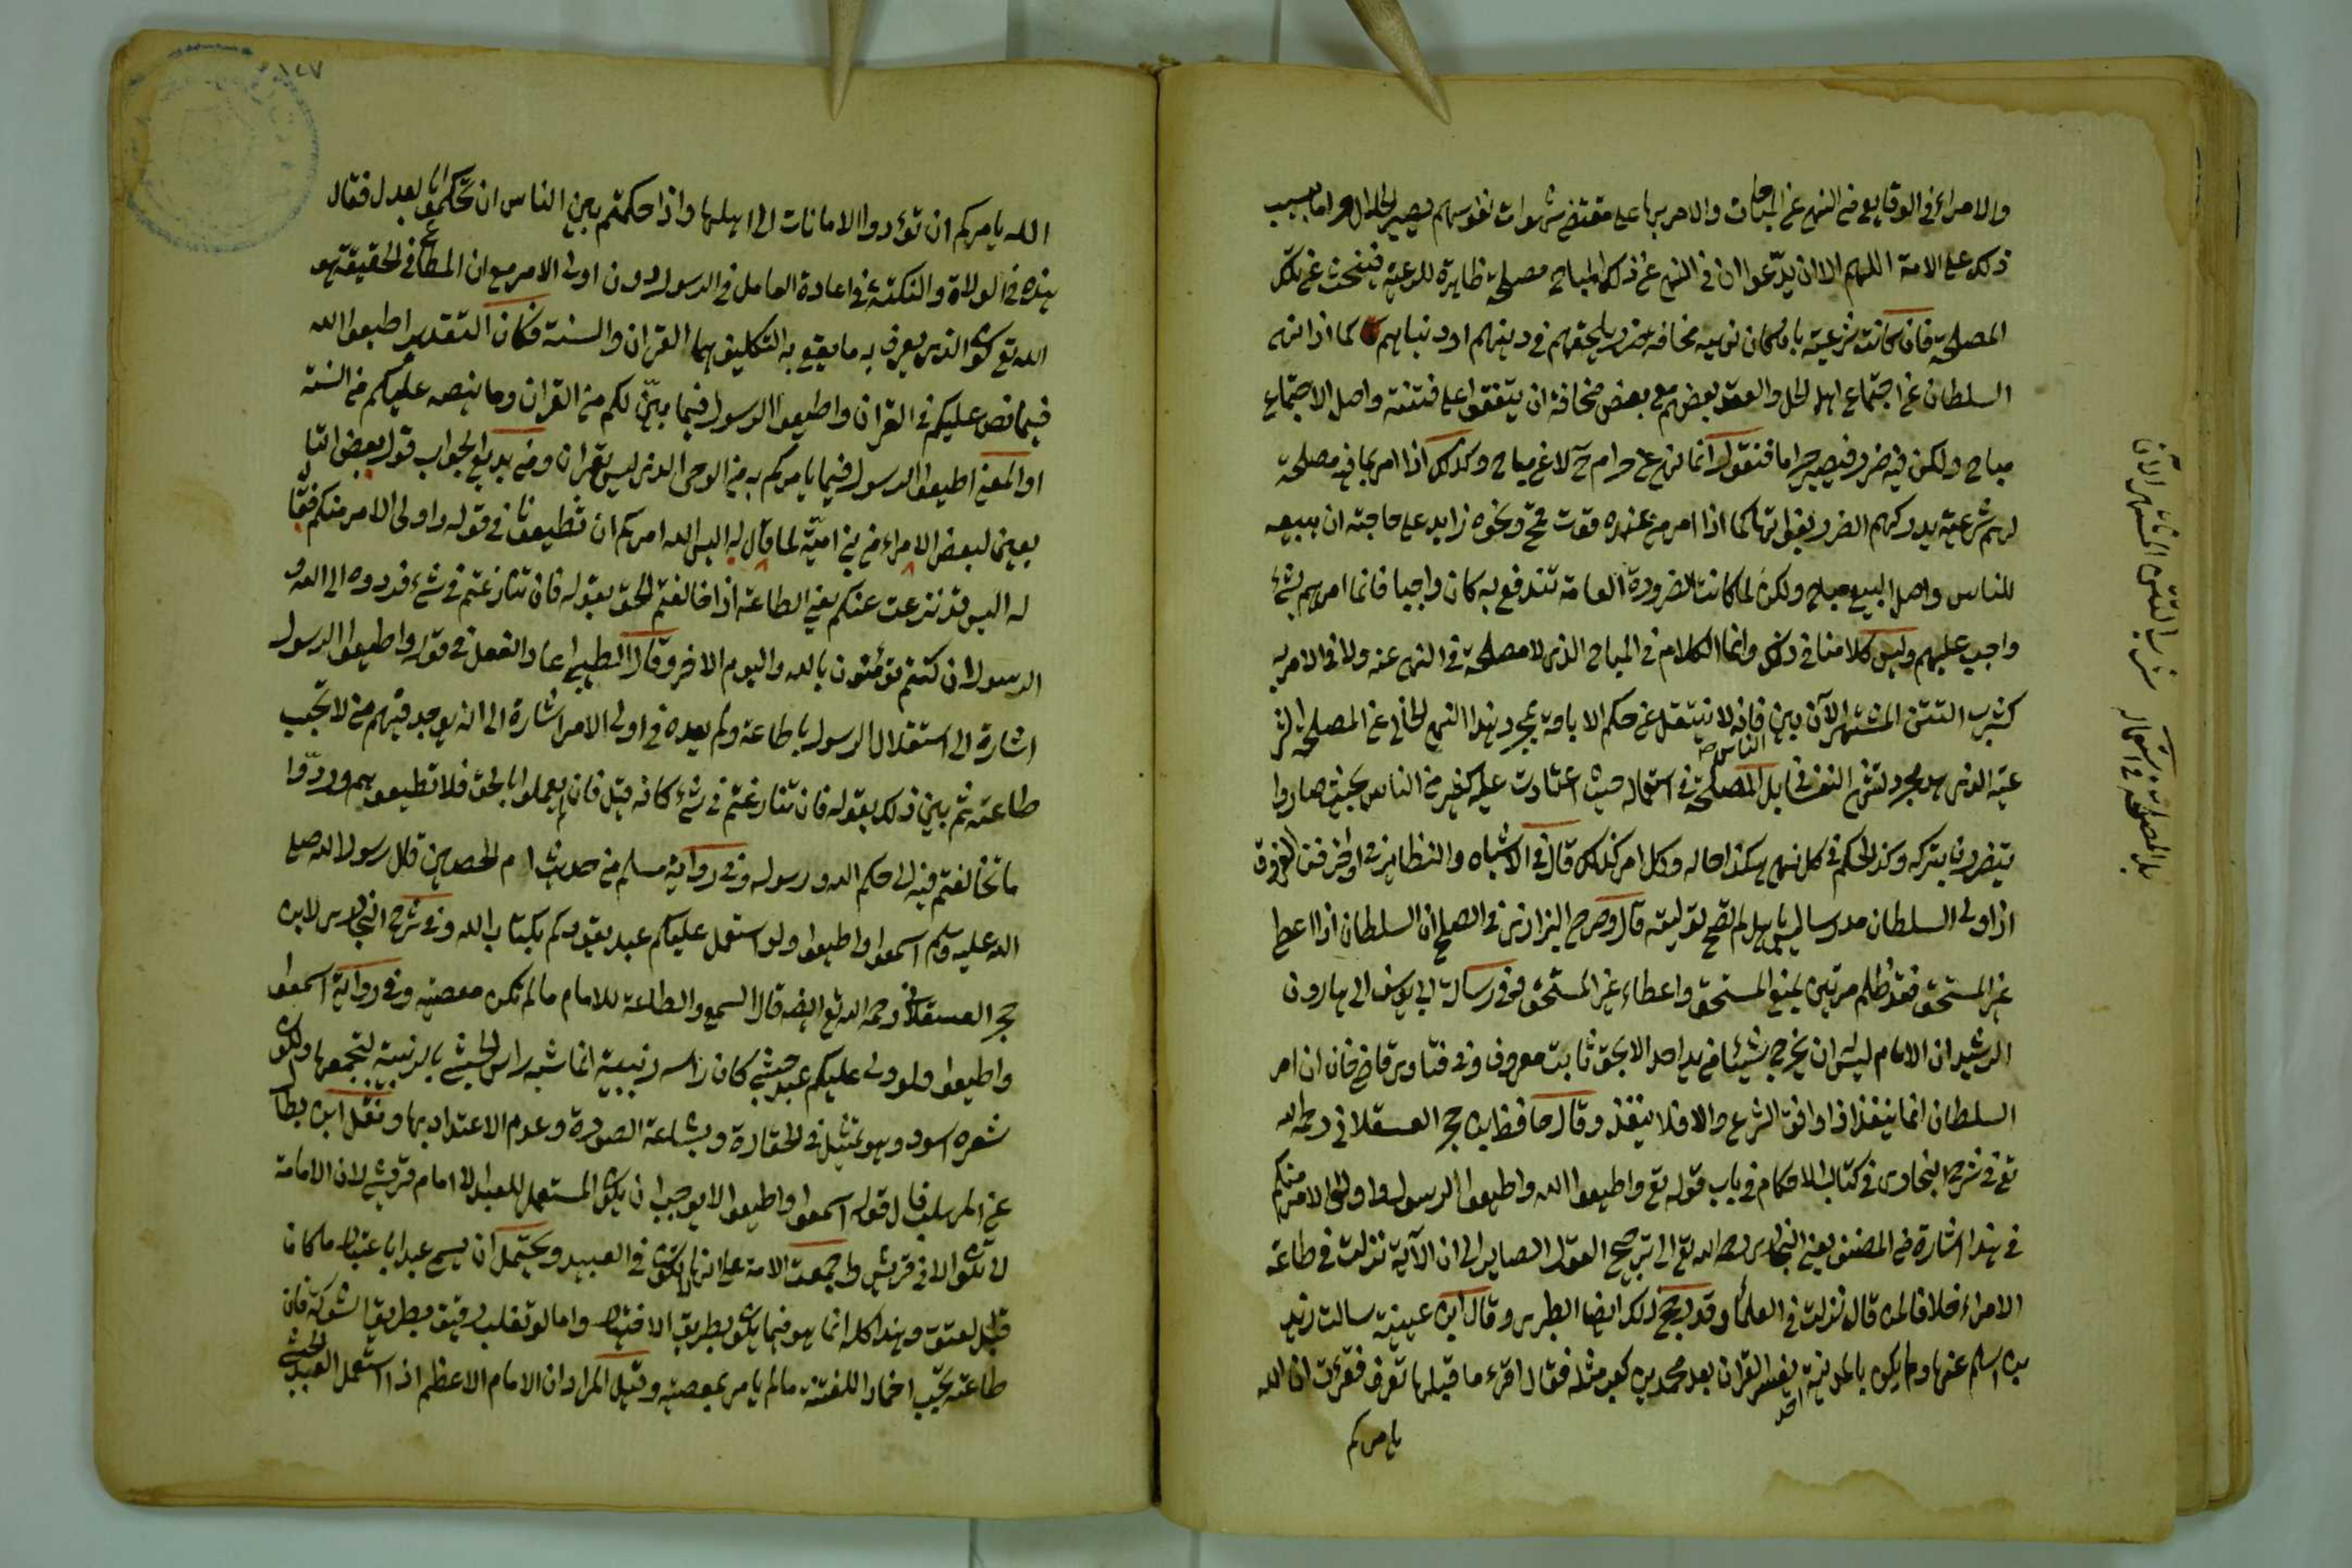 والامراء في الوقايع من النهي عن المباحات والامر بها على مقتضى شهوات نفوسهم فيصير الحلال حراما بسبب
ذلك على الامة اللهم الا ان يدّعوا ان في النهي عن ذلك المباح مصلحة ظاهرة للرعية فينحث عن تلك
المصلحة فان كانت شرعية بان كان نهيه مخافة ضرر يلحقهم في دينهم او دنياهم كما اذا نهى
السلطان عن اجتماع اهل الحل والعقد بعضهم مع بعض مخافة ان يتفقوا على فتنة واصل الاجتماع
مباح ولكن فيه ضرر فيصير حراما فنقول انما نهى عن حرام ح لا عن مباح وكذلك اذا امر بما فيه مصلحة
لهم شرعية يدركهم الضرر بفواتها كما اذا امر من عنده قوت قمح ونحوه زايد على حاجته ان يبيعه
للناس واصل البيع مباح ولكن لما كانت الضرورة العامة تندفع به كان واجبا فانما امرهم بشئ
واجب عليهم وليس كلامنا في ذلك وانما الكلام في المباح الذي لا مصلحة في النهي عنه ولا في الامر به
كشرب التتن المشتهر الآن بين الناس فانه لا ينتقل عن حكم الاباحة بمجرد هذا النهي الخالي عن المصلحة الشر
عية الذي هو مجرد لغرض النفساني بل المصلحة في استعماله حيث اعتادت عليه كثير من الناس بحيث صاروا
يتضررون بتركه وكذا الحكم في كل نهي هكذا حاله وكل امر كذلك قال في الاشباه والنظاير في اواخر فن الفروق
اذا ولى السلطان مدرسا ليس باهل لم تصح توليته قال وصرح البزازي في الصلح ان السلطان اذا اعطى
غير المستحق فقد ظلم مرتين بمنع المستحق واعطاء غير المستحق وفي رسالة ابي يوسف الى هارون
الرشيد ان الامام ليس له ان يخرج شيئا من يد احد الا بحق ثابت معروف وفي فتاوى قاضيخان ان امر
السلطان انما ينفذ اذا وافق الشرع والا فلا ينفذ وقال حافظ ابن حجر العسقلاني رحمه الله
تع في شرح البخاري في كتاب الاحكام في باب قوله تع واطيعوا الله واطيعوا الرسول واولي الامر منكم
في هذا اشارة من المصنف يعني البخاري رحمه الله تع الى ترجيح القول الصاير الى ان الآية نزلت في طاعة
الامراء خلافا لمن قال نزلت في العلماء وقد رجح ذلك ايضا الطبري وقال ابن عيينة سالت زيد
بن اسلم عنها ولم يكن بالمدينة احد يفسر القران بعد محمد بن كعب مثله فقال اقرء ما قبلها تعرف فقرات ان الله
يامركم
شرب التتن المشتهر الآن
بل المصلحة في استعماله
١٤٧
الله يامركم ان تؤدوا الامانات الى اهلها واذا حكمتم بين الناس ان تحكموا بالعدل فقال
هذه في الولاة والنكتة في اعادة العامل في الرسول دون اولي الامر مع ان المطاع في الحقيقة هو
الله تع كون الذي يعرف به ما يقع به التكليف هما القران والسنة فكان التقدير اطيعوا الله
فيما نص عليكم في القران واطيعوا الرسول فيما بيّن لكم من القران وما ينصه عليكم من السنة
او المعنى اطيعوا الرسول فيما يامركم به من الوحي الذي ليس بقران ومن بديع الجواب قول بعض التا
بعين لبعض الامراء من بني امية لما قال له اليس الله امركم ان تطيعونا في قوله واولي الامر منكم فقال
له اليس قد نزعت عنكم يعني الطاعة اذا خالفتم الحق بقوله فان تنازعتم في شئ فردوه الى الله و
الرسول ان كنتم تؤمنون بالله واليوم الاخر وقال الطيبي اعاد الفعل في قوله واطيعوا الرسول
اشارة الى استقلال الرسول بالطاعة ولم يعده في اولي الامر اشارة الى انه يوجد فيهم من لا تجب
طاعته ثم بين ذلك بقوله فان تنازعتم في شئ كانه قيل فان لم يعملوا بالحق فلا تطيعوهم وردّوا
ما تخالفتم فيه الى حكم الله ورسوله وفي رواية مسلم من حديث ام الحصين قال رسول الله صلى
الله عليه وسلم اسمعوا واطيعوا ولو استعمل عليكم عبد يقودكم بكتاب الله وفي شرح البخاري لابن
حجر العسقلاني رحمه الله تع ايضا قال السمع والطاعة للامام ما لم تكن معصية وفي رواية اسمعوا
واطيعوا ولو ولي عليكم عبد حبشي كان راسه زبيبة انما شبه راس الحبشي بالزبيبة لتجمعها ولكون
شعره اسود وهو تمثيل في الحقارة وبشاعة الصورة وعدم الاعتداد بها ونقل ابن بطال
عن المهلب قال قوله اسمعوا واطيعوا لا يوجب ان يكون المستعمل للعبد الا امام قرشي لان الامامة
لا تكون الا في قريش واجمعت الامة على انها لا تكون في العبيد ويحتمل ان يسمى عبدا باعتبار ما كان
قبل العتق وهذا كله انما هو فيما يكون بطريق الاختيار واما لو تغلب رقيق بطريق الشوكة فان
طاعته تجب اخمادا للفتنة ما لم يامر بمعصية وقيل المراد ان الامام الاعظم اذا استعمل العبد الحبشي